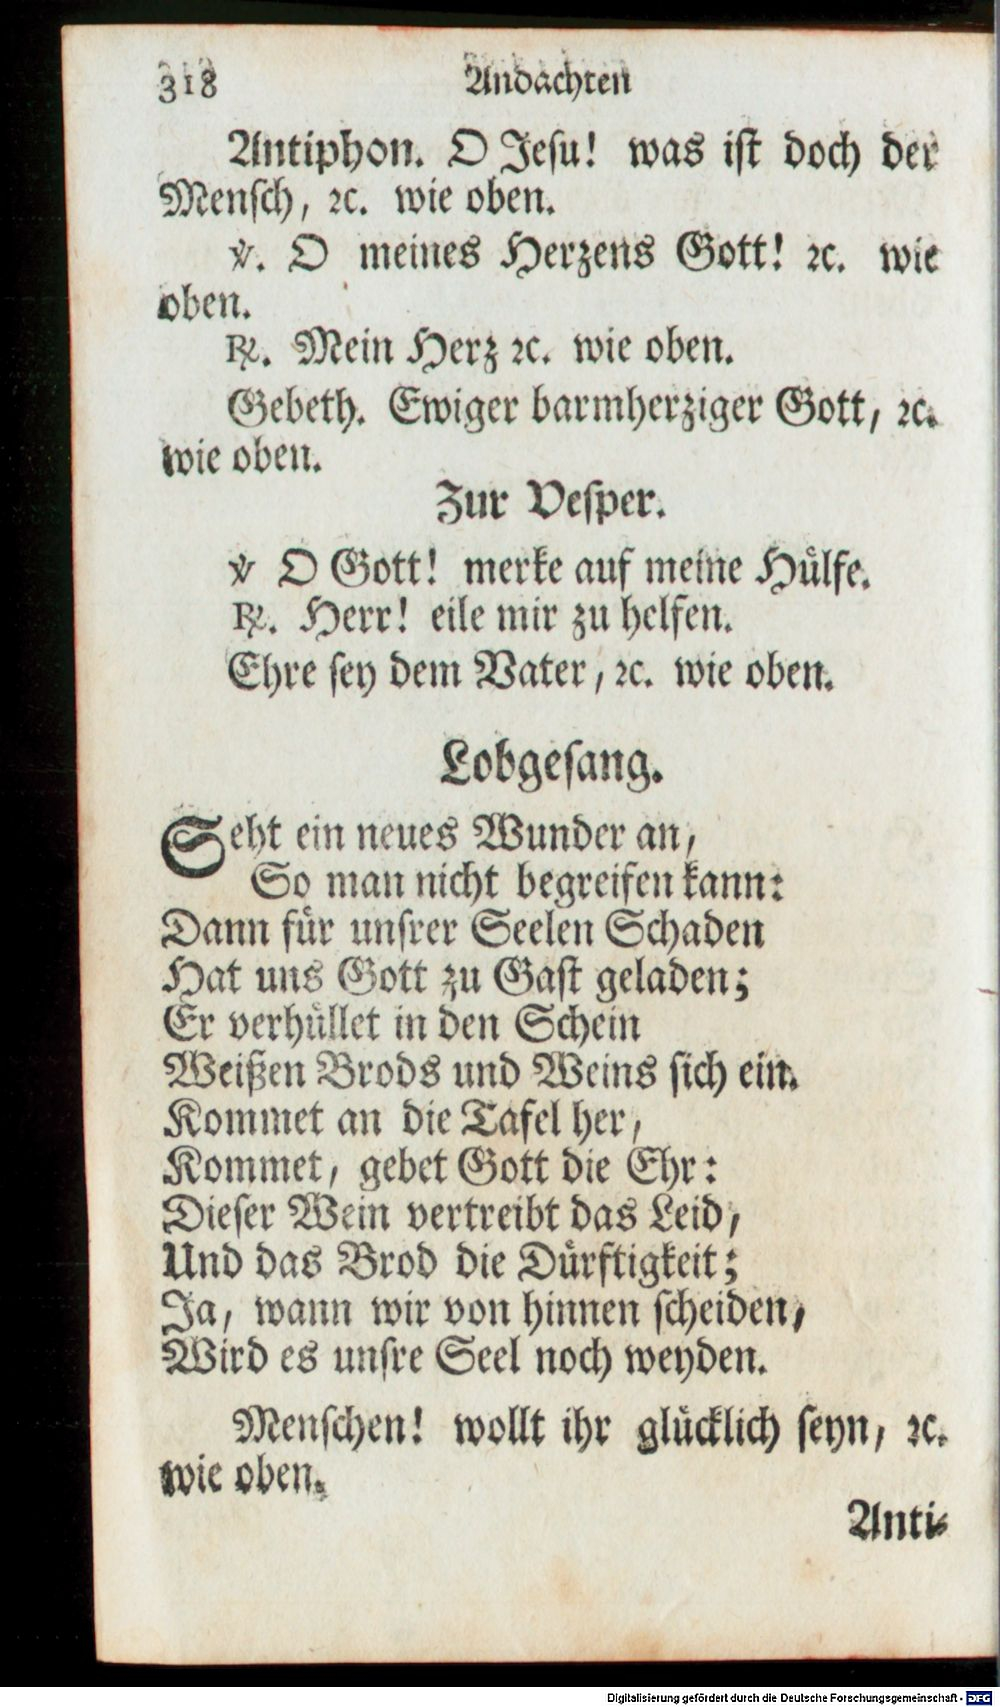 318 Andachten
Antiphon. O Jesu! was ist doch der
Mensch, ꝛc. wie oben.
℣. O meines Herzens Gott! ꝛc. wie
oben.
℟. Mein Herz ꝛc. wie oben.
Gebeth. Ewiger barmherziger Gott, ꝛc.
wie oben.
Zur Vesper.
℣ O Gott! merke auf meine Hülfe.
℟. Herr! eile mir zu helfen.
Ehre sey dem Vater, ꝛc. wie oben.
Lobgesang.
Seht ein neues Wunder an,
So man nicht begreifen kann:
Dann für unsrer Seelen Schaden
Hat uns Gott zu Gast geladen;
Er verhüllet in den Schein
Weißen Brods und Weins sich ein.
Kommet an die Tafel her,
Kommet, gebet Gott die Ehr:
Dieser Wein vertreibt das Leid,
Und das Brod die Dürftigkeit;
Ja, wann wir von hinnen scheiden,
Wird es unsre Seel noch weyden.
Menschen! wollt ihr glücklich seyn, ꝛc.
wie oben.
Anti-
Digitalisierung gefördert durch die Deutsche Forschungsgemeinschaft - DFG